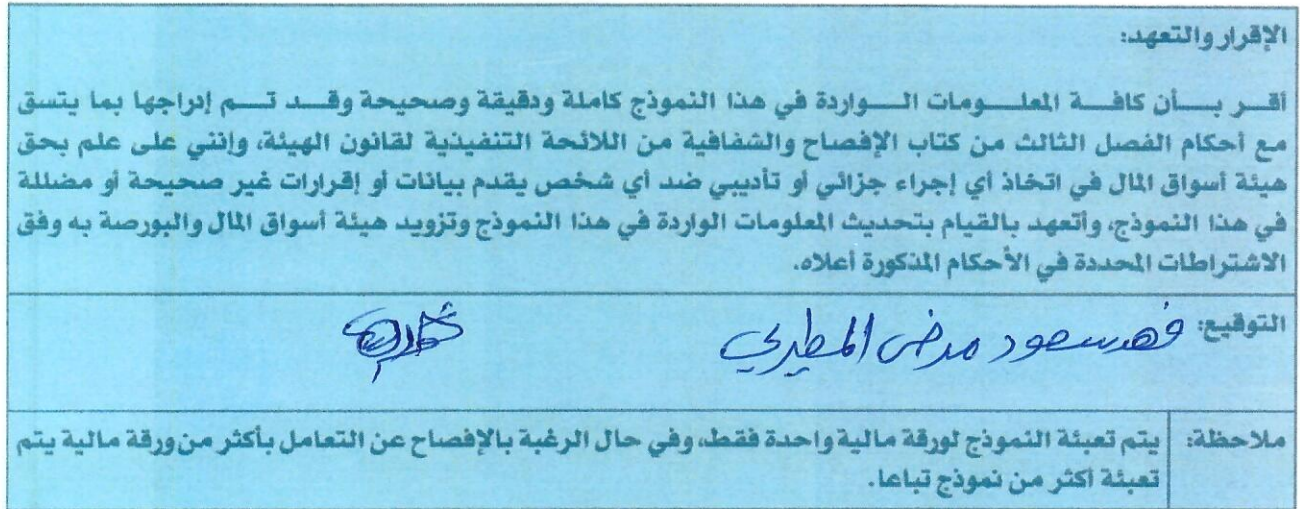 الإقرار والتعهد:
أقـــر بـــــأن كافـــة المعلـــــومات الـــــواردة في هذا النموذج كاملة ودقيقة وصحيحة وقـــد تـــم إدراجها بما يتسق
مع أحكام الفصل الثالث من كتاب الإفصاح والشفافية من اللائحة التنفيذية لقانون الهيئة، وإنني على علم بحق
هيئة أسواق المال في اتخاذ أي إجراء جزائي أو تأديبي ضد أي شخص يقدم بيانات أو إقرارات غير صحيحة أو مضللة
في هذا النموذج، وأتعهد بالقيام بتحديث المعلومات الواردة في هذا النموذج وتزويد هيئة أسواق المال والبورصة به وفق
الاشتراطات المحددة في الأحكام المذكورة أعلاه.
التوقيع: فهد سعود مرضي المطيري
ملاحظة: يتم تعبئة النموذج لورقة مالية واحدة فقط، وفي حال الرغبة بالإفصاح عن التعامل بأكثر من ورقة مالية يتم
تعبئة أكثر من نموذج تباعا.